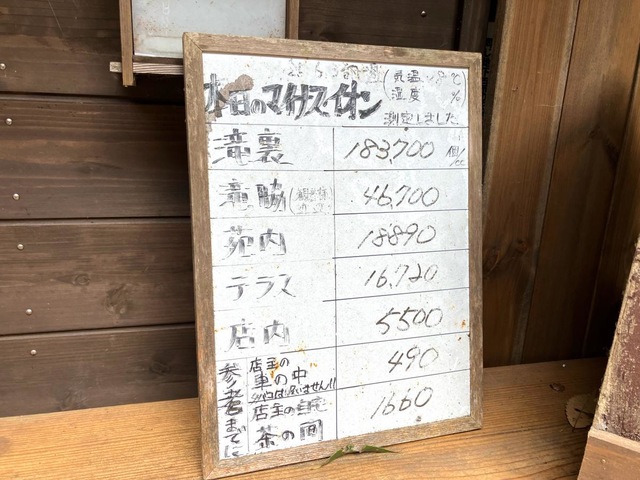 本日のマイナスイオン (気温 ℃ 湿度 %) 測定しました
滝裏 183,700 個/cc
滝脇 46,700
苑内 18890
テラス 16,720
店内 5500
参考までに
店主の車の中 490
タバコは吸いません!!
店主の家 茶の間 1660